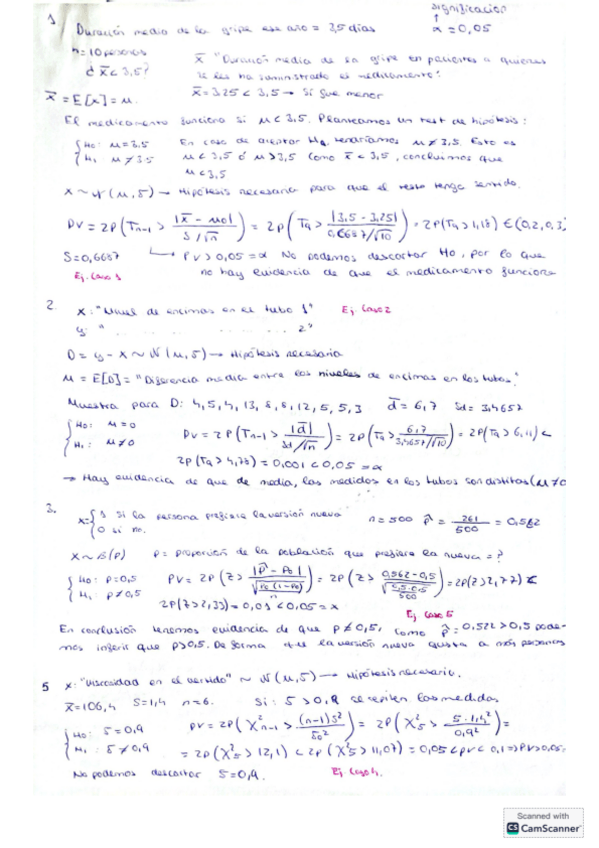 significación
↑
1 Duración media de la gripe ese año = 3,5 días α = 0,05
n = 10 personas
¿ x̄ < 3,5?
x̄ "Duración media de la gripe en pacientes a quienes
se les ha suministrado el medicamento".
x̄ = 3.25 < 3,5 → Sí que menor
x̄ = E[x] = μ.
El medicamento funciona si μ < 3.5. Planteamos un test de hipótesis:
{H0: μ = 3.5
H1: μ ≠ 3.5
En caso de aceptar Ha, tendríamos μ ≠ 3,5. Esto es
μ < 3,5 ó μ > 3,5 como x̄ < 3,5, concluimos que
μ < 3,5
X ~ N(μ, S) → Hipótesis necesaria para que el resto tenga sentido.
PV = 2P(Tn-1 > |x̄ - μ0| / S/√n) = 2P(T9 > |3,5 - 3,25| / 0,6687/√10) = 2P(T9 > 1,18) ∈ (0,2, 0,3)
S = 0,6687 → PV > 0,05 = α No podemos descartar H0, por lo que
no hay evidencia de que el medicamento funciona
Ej. Caso 1
2. X: "Nivel de encimas en el tubo 1" Ej. Caso 2
Y: " ... ... ... 2"
D = Y - X ~ N(μ, S) → Hipótesis necesaria
μ = E[D] = "Diferencia media entre los niveles de encimas en los tubos."
Muestra para D: 4, 5, 4, 13, 8, 8, 12, 5, 5, 3 d̄ = 6,7 Sd = 3,4657
{H0: μ = 0
H1: μ ≠ 0
PV = 2P(Tn-1 > |d̄| / Sd/√n) = 2P(T9 > 6,7 / 3,4657/√10) = 2P(T9 > 6,11) <
2P(T9 > 4,78) = 0,001 < 0,05 = α
→ Hay evidencia de que de media, las medidas en los tubos son distintas (μ ≠ 0
3. X = {1 Si la persona prefiere la versión nueva
0 si no.
n = 500 p̂ = 261/500 = 0,562
X ~ B(p) p = proporción de la población que prefiere la nueva = ?
{H0: p = 0,5
H1: p ≠ 0,5
PV = 2P(Z > |p̂ - p0| / √(p0(1-p0)/n)) = 2P(Z > 0,562 - 0,5 / √(0,5·0,5/500)) = 2P(Z > 2,77) <
2P(Z > 2,33) = 0,01 < 0,05 = α
Ej. Caso 5
En conclusión tenemos evidencia de que p ≠ 0,5, como p̂ = 0,522 > 0,5 pode-
mos inferir que p > 0,5. De forma que la versión nueva gusta a más personas
5 X: "Viscosidad en el vertido" ~ N(μ, S) → Hipótesis necesaria.
x̄ = 106,4 S = 1,4 n = 6. Si: S > 0,9 se repiten las medidas
{H0: S = 0,9
H1: S ≠ 0,9
PV = 2P(χ²n-1 > (n-1)S² / S0²) = 2P(χ²5 > 5·1,4² / 0,9²) =
= 2P(χ²5 > 12,1) < 2P(χ²5 > 11,07) = 0,05 < PV < 0,1 ⇒ PV > 0,05.
No podemos descartar S = 0,9. Ej. Caso 4.
Scanned with
CS CamScanner